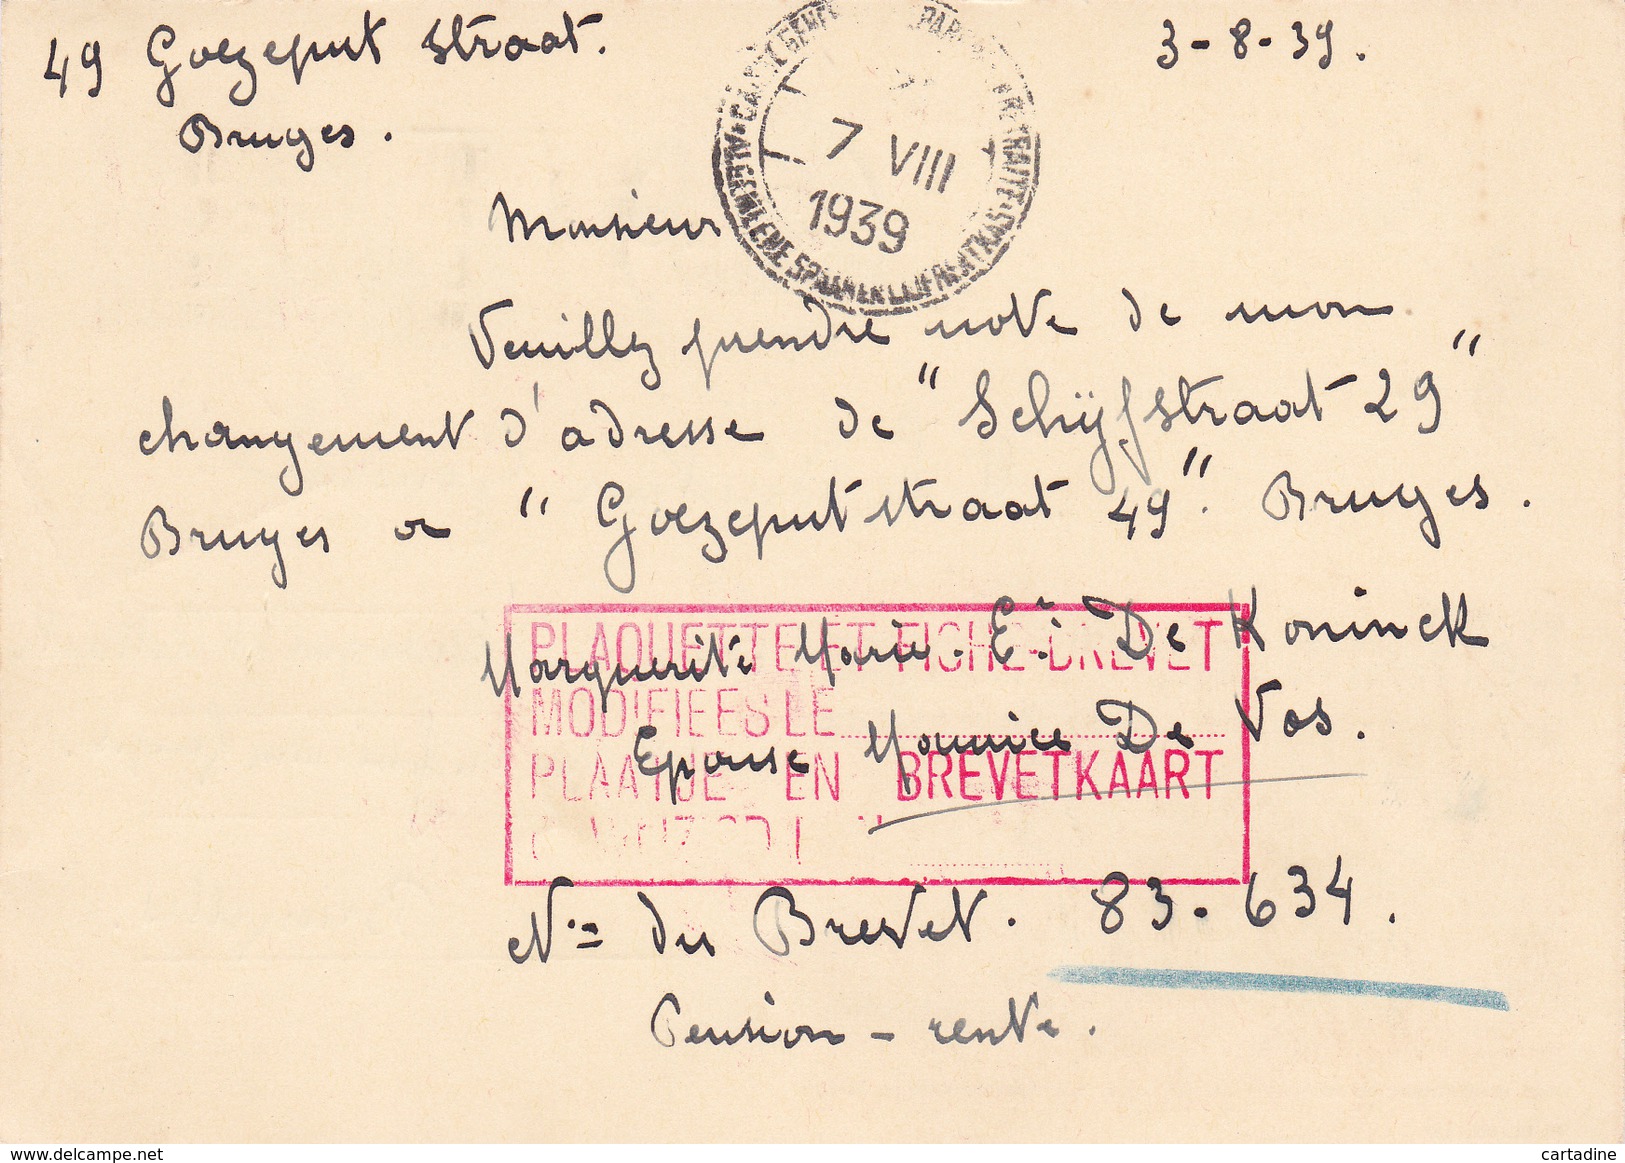 49 Goezeput straat.
3-8-39.
Bruges.
7 VIII
1939
ALGEMEENE SPAAR EN LIJFRENTKAS
Monsieur
Veuillez prendre note de mon
changement d'adresse de "Schijfstraat 29"
Bruges a "Goezeputstraat 49". Bruges.
PLAQUETTE ET FICHE-BREVET
MODIFIEES LE
PLAATJE EN BREVETKAART
Marguerite Marie. E. De Koninck
Epouse Maurice De Vos.
No du Brevet. 83-634.
Pension - rente.
www.delcampe.net
cartadine